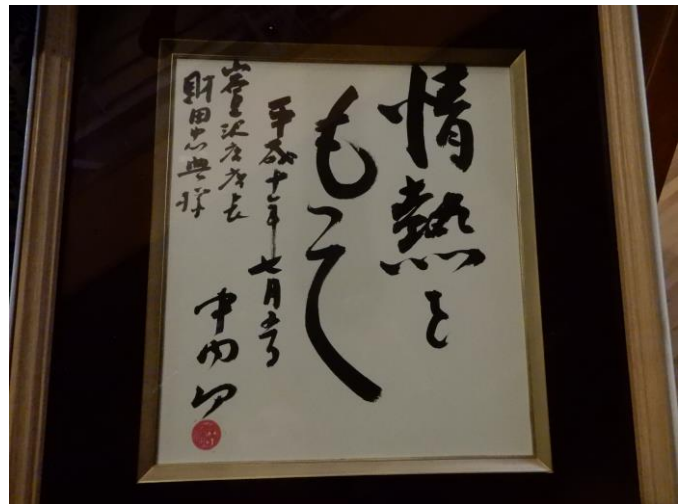 情熱を
もって
平成十年七月
岩見沢店店長
財田忠典様
中内㓛